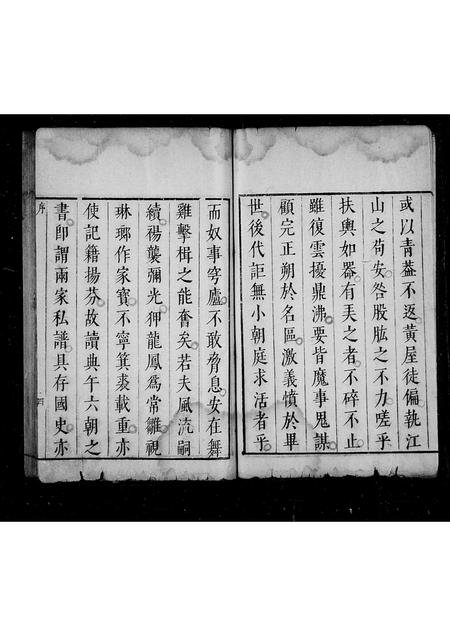 或以青蓋不返黃屋徒偏執江
山之苟安咎股肱之不力嗟乎
扶輿如器有美之者不碎不止
雖復雲擾鼎沸要皆魔事鬼謀
顧完正朔於名區激義憤於畢
世後代詎無小朝庭求活者乎
而奴事穹廬不敢脅息安在舞
雞擊楫之能奮矣若夫風流嗣
續裼襲彌光狎龍鳳為常雛視
琳瑯作家寶不寧箕裘載重亦
使記籍揚芬故讀典午六朝之
書即謂兩家私譜具存國史亦
序
四